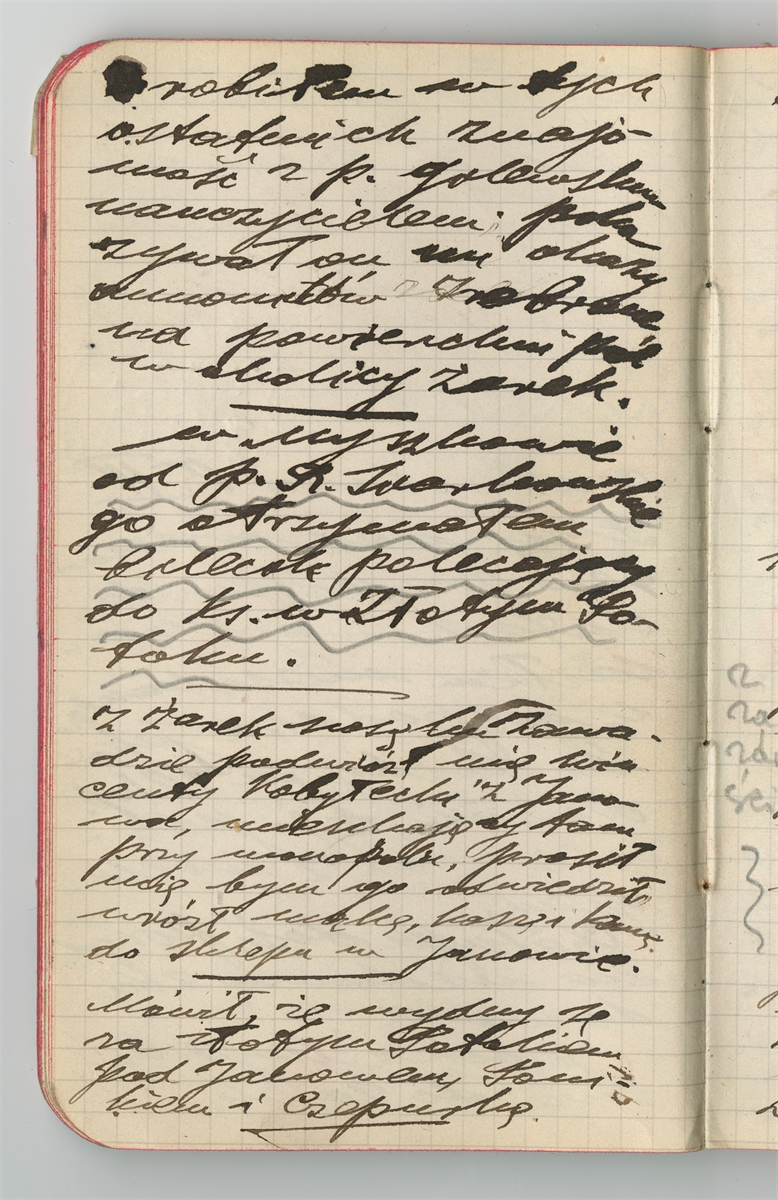 robiłem w tych
ostatnich znajo-
mość z p. Golewskim
nauczycielem: poka
zywał on mi okazy
amonitów zebrane
na powierzchni pól
w okolicy Żarek.
w Myszkowie
od p. R. Warkowskie
go otrzymałem
bilecik polecający
do ks. w Złotym Po-
toku.
z Żarek szosą ku Zawa-
dzie podwiózł mię Win
centy Kobyłecki z Jano
wa, mieszkający tam
przy monopolu, prosił
mię bym go odwiedził,
wiózł mąkę, kaszę i
do sklepu w Janowie.
Mówił, że wydmy są
za Złotym Potokiem
pod Janowem,
kiem i Czepurką.
z
za